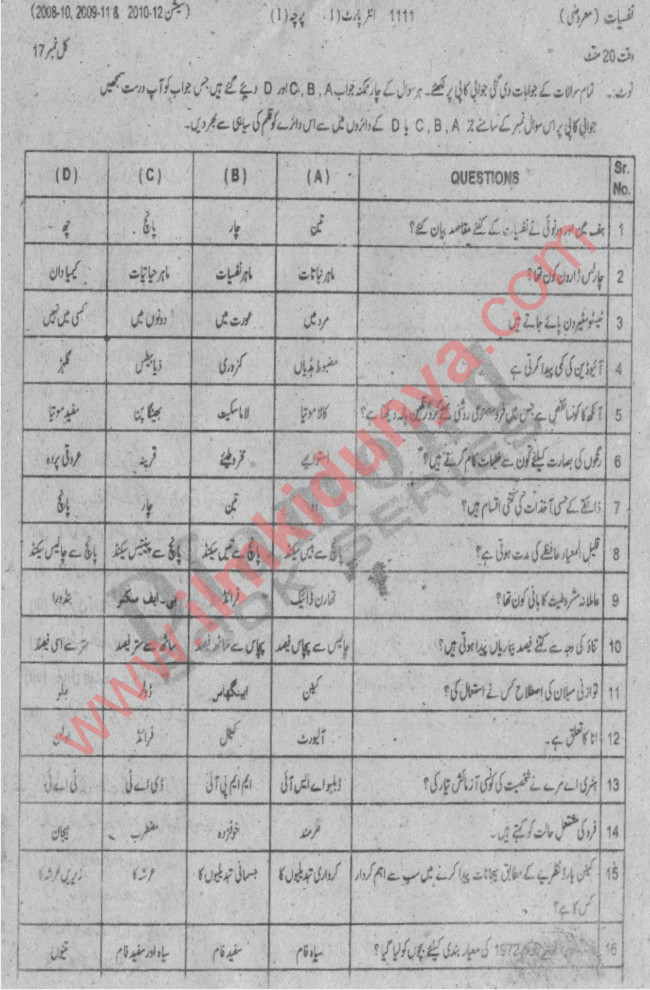 نفسیات (معروضی) 1111 انٹر پارٹ (I) پرچہ (I) (سیشن 2010-12 & 2009-11 ,2008-10)
وقت 20 منٹ کل نمبر 17
نوٹ:۔ تمام سوالات کے جوابات دی گئی جوابی کاپی پر لکھئے۔ ہر سوال کے چار ممکنہ جواب C, B, A اور D دیئے گئے ہیں جس جواب کو آپ درست سمجھیں
جوابی کاپی پر اس سوال نمبر کے سامنے C, B, A یا D کے دائروں میں سے اس دائرے کو قلم کی سیاہی سے بھر دیں۔
Sr. No. QUESTIONS (A) (B) (C) (D)
1 ہف مین اور ورنوئی نے نفسیات کے کتنے مقاصد بیان کئے؟ تین چار پانچ چھ
2 چارلس ڈارون کون تھا؟ ماہر نباتات ماہر نفسیات ماہر حیاتیات کیمیا دان
3 ٹیسٹوسٹیرون پائے جاتے ہیں مرد میں عورت میں دونوں میں کسی میں نہیں
4 آئیوڈین کی کمی پیدا کرتی ہے مضبوط ہڈیاں کمزوری ذیابیطس گلہڑ
5 آنکھ کا کونسا نقص ہے جس میں فرد مصنوعی روشنی کے گرد رنگین ہالہ دیکھتا ہے؟ کالا موتیا لاماسکیت بھینگا پن سفید موتیا
6 رنگوں کی بصارت کیلئے کون سے خلیات کام کرتے ہیں؟ استوانے مخروطئے قرینہ عروقی پردہ
7 ذائقے کے حسی آخذات کی کتنی اقسام ہیں؟ دو تین چار پانچ
8 قلیل المعیاد حافظے کی مدت ہوتی ہے؟ پانچ سے بیس سیکنڈ پانچ سے تیس سیکنڈ پانچ سے پینتیس سیکنڈ پانچ سے چالیس سیکنڈ
9 عاملانہ مشروطیت کا بانی کون تھا؟ تھارن ڈائیک فرائڈ بی۔ ایف سکنر بنڈورا
10 تناؤ کی وجہ سے کتنے فیصد بیماریاں پیدا ہوتی ہیں؟ چالیس سے پچاس فیصد پچاس سے ساٹھ فیصد ساٹھ سے ستر فیصد ستر سے اسی فیصد
11 توازنی میلان کی اصطلاح کس نے استعمال کی؟ کینن ایبنگھاس ڈولر ملر
12 انا کا تعلق ہے۔ آلپورٹ کیٹل فرائڈ
13 ہنری اے مرے نے شخصیت کی کونسی آزمائش تیار کی؟ ڈبلیو اے ایس آئی ایم ایم پی آئی ڈی اے ٹی ٹی اے ٹی
14 فرد کی مشتعل حالت کو کہتے ہیں۔ شرمند خوفزدہ مضطرب ہیجان
15 کینن بارڈ نظریے کے مطابق ہیجانات پیدا کرنے میں سب سے اہم کردار کس کا ہے؟ کرداری تبدیلیوں کا جسمانی تبدیلیوں کا عرشہ کا زیریں عرشہ کا
16 1972 کی معیار بندی کیلئے بچوں کو لیا گیا؟ سیاہ فام سفید فام سیاہ اور سفید فام تینوں
www.ilmkidunya.com
Diamond
BOOK SERIES